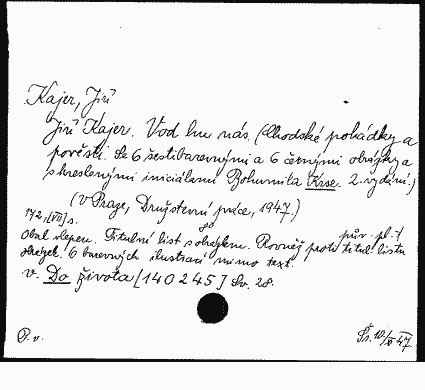 Kajer, Jiří
Jiří Kajer. Vod hu nás. (Chodské pohádky a
pověsti. Se 6 šestibarevnými a 6 černými obrázky a
s kreslenými iniciálami Bohumila Krse. 2. vydání.)
(V Praze, Družstevní práce, 1947.)
172, [VII] s. 8°
Obal slepen. Titulní list s obrázkem. Rovněž proti titul. listu
obrázek. 6 barevných ilustrací mimo text.
v. Do života [140245] Sv. 28.
P. v.